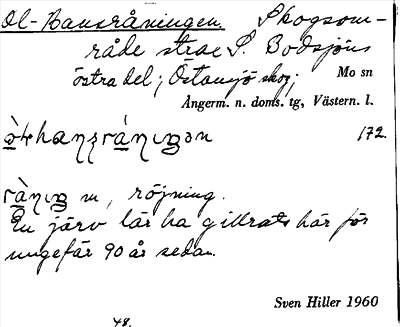 Ol-Hansråningen. Skogsom-
råde strax S. Bodsjöns
östra del; Östansjö skog; Mo sn
Ångerm. n. doms. tg, Västern. l.
172.
m, röjning.
En järv lär ha gillrats här för
ungefär 90 år sedan.
Sven Hiller 1960
48.